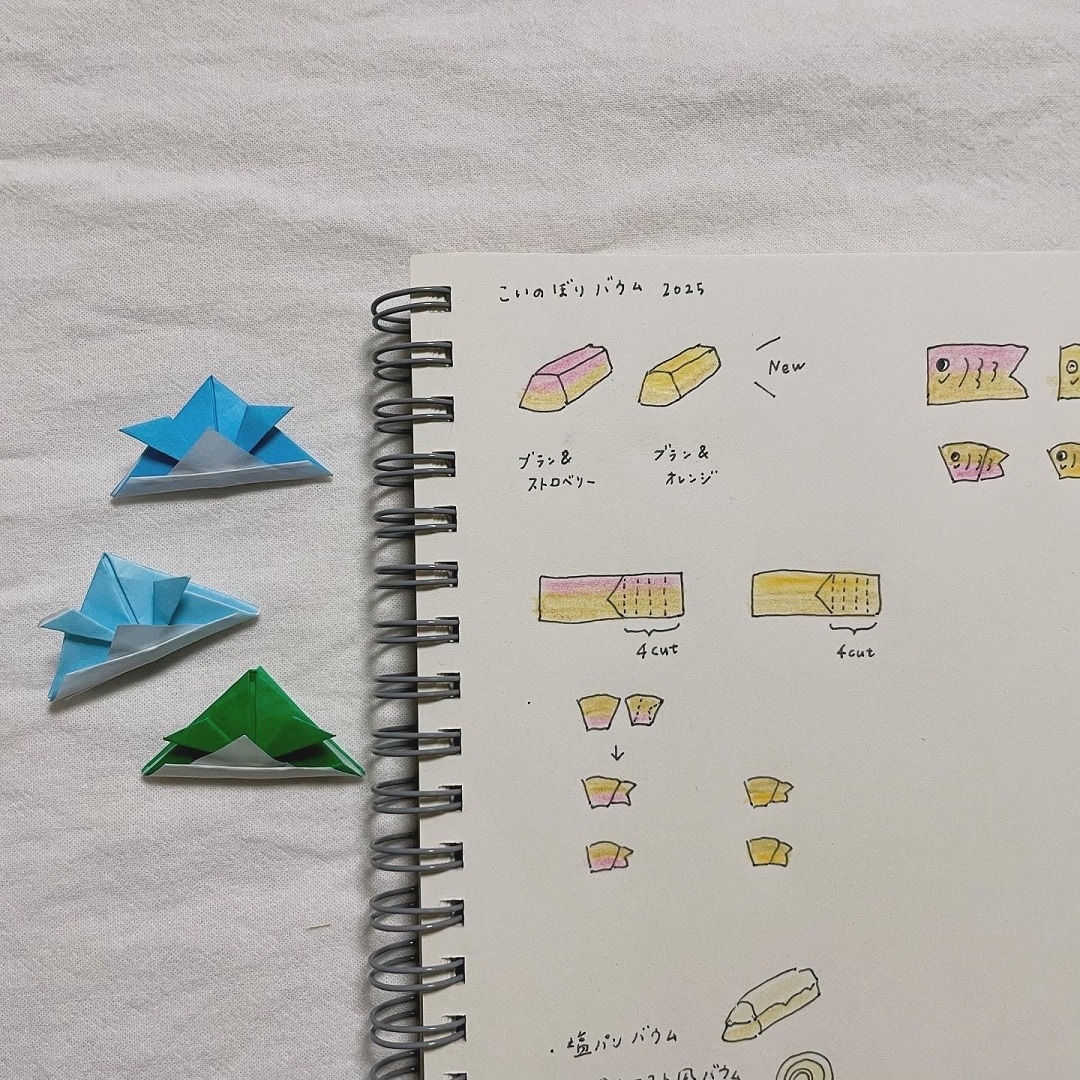 こいのぼりバウム 2025
New
ブラン&
ストロベリー
ブラン&
オレンジ
4cut
4cut
・塩パンバウム
バウム